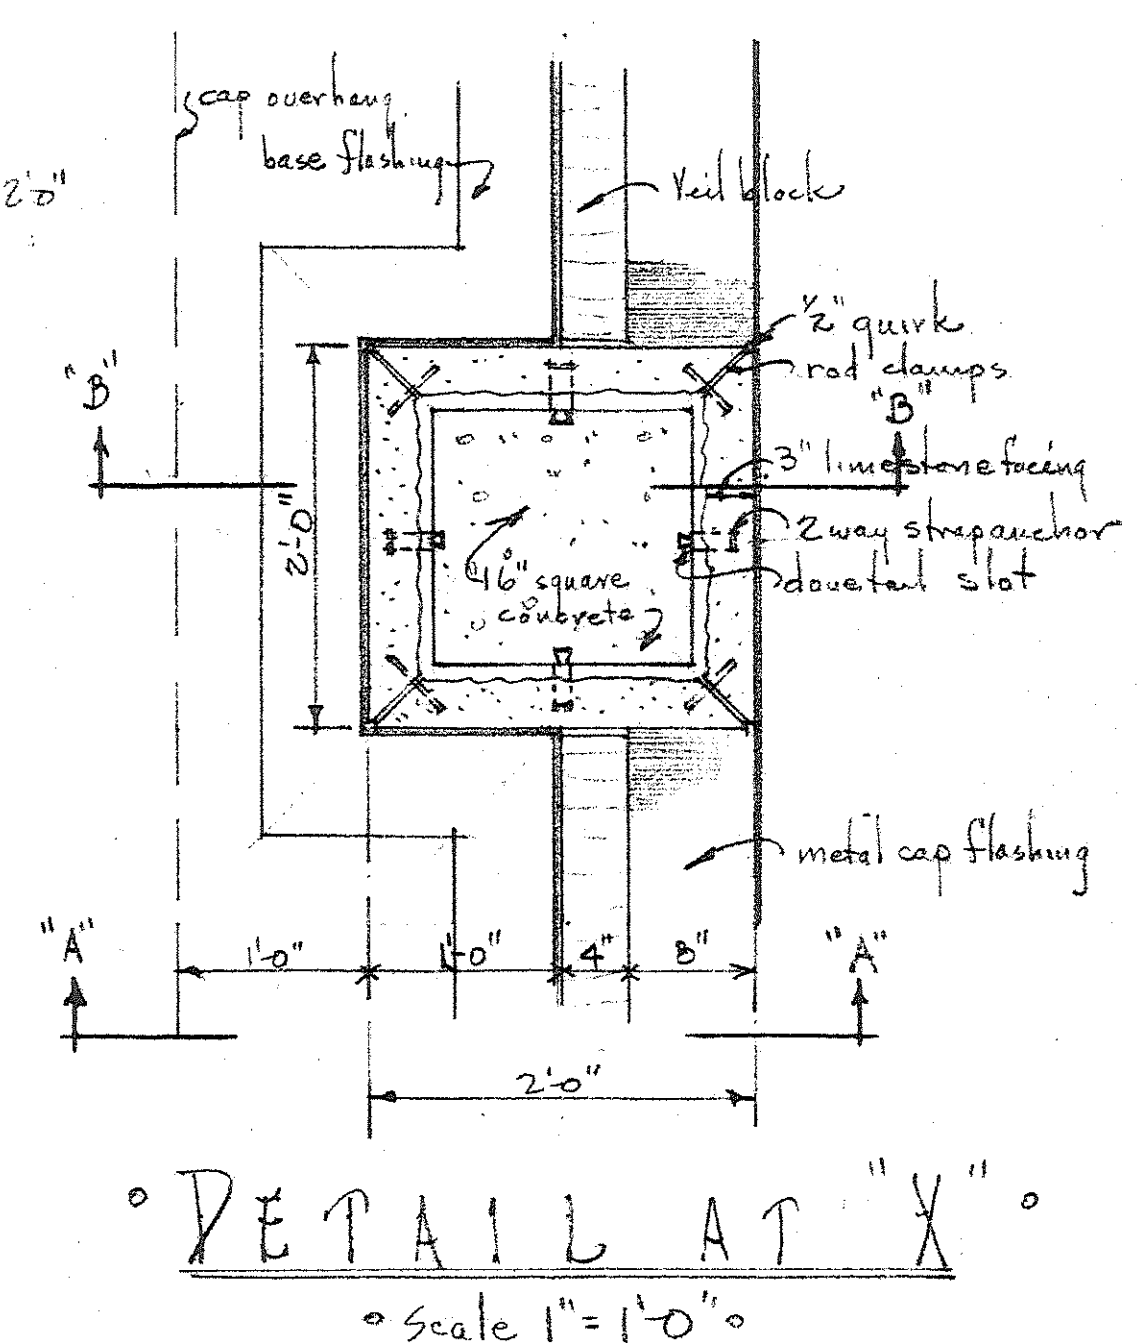 cap overhang
base flashing
2'-0"
Veil block
1/2" quirk
rod clamps
"B"
"B"
3" limestone facing
2'-0"
2 way strap anchor
dovetail slot
16" square
concrete
metal cap flashing
"A"
1'-0"
1'-0"
4"
8"
"A"
2'-0"
° DETAIL AT "X" °
° Scale 1" = 1'-0" °